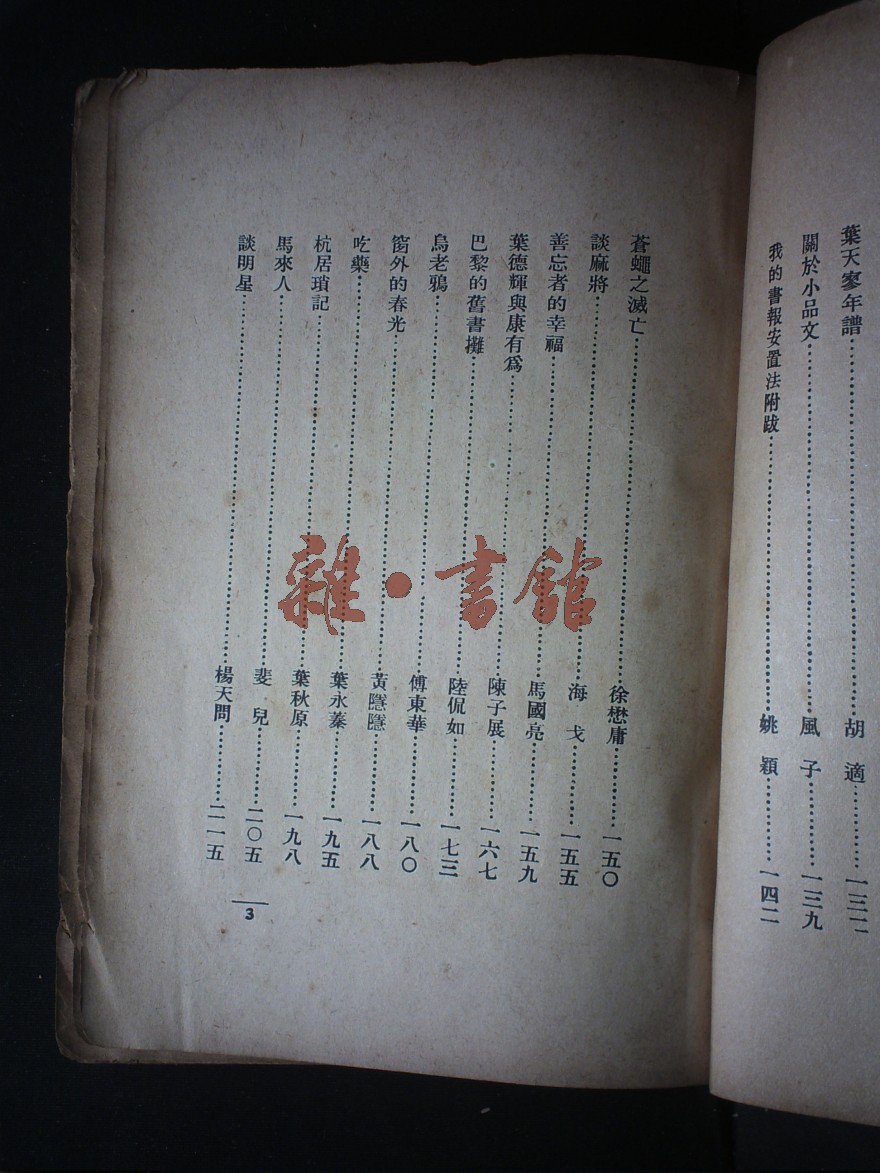 葉天寥年譜……胡適……一三二
關於小品文……風子……一三九
我的書報安置法附跋……姚穎……一四二
蒼蠅之滅亡……徐懋庸……一五〇
談麻將……海戈……一五五
善忘者的幸福……馬國亮……一五九
葉德輝與康有爲……陳子展……一六七
巴黎的舊書攤……陸侃如……一七三
烏老鴉……傅東華……一八〇
窗外的春光……黃廬隱……一八八
吃藥……葉永蓁……一九五
杭居瑣記……葉秋原……一九八
馬來人……斐兒……二〇五
談明星……楊天問……二一五
3
雜·書館